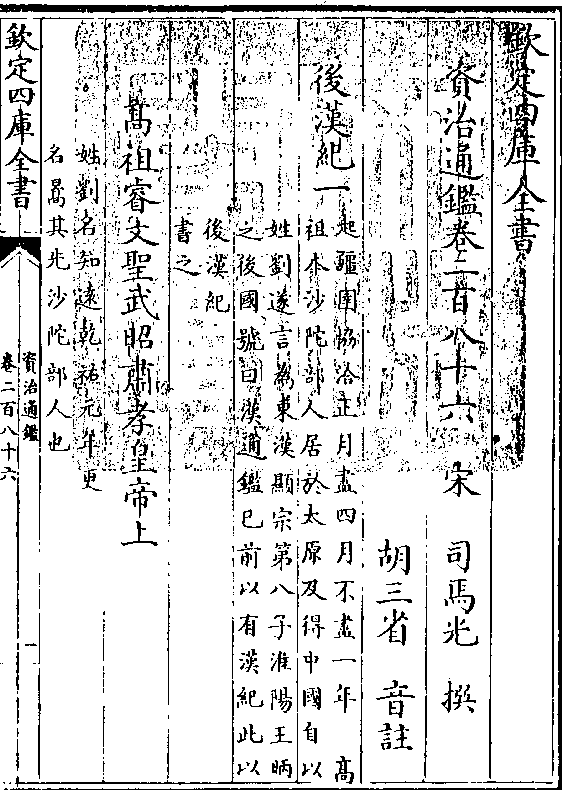 欽定四庫全書
資治通鑑卷二百八十六　宋　司馬光　撰
胡三省　音註
後漢紀一
起疆圉協洽正月盡四月不盡一年　高
祖本沙陀部人居於太原及得中國自以
姓劉遂言為東漢顯宗第八子淮陽王昞
之後國號曰漢通鑑已前以有漢紀此以
後漢紀
書之
高祖睿文聖武昭肅孝皇帝上
姓劉名知遠乾祐元年更
名暠其先沙陀部人也
欽定四庫全書
資治通鑑
卷二百八十六
一